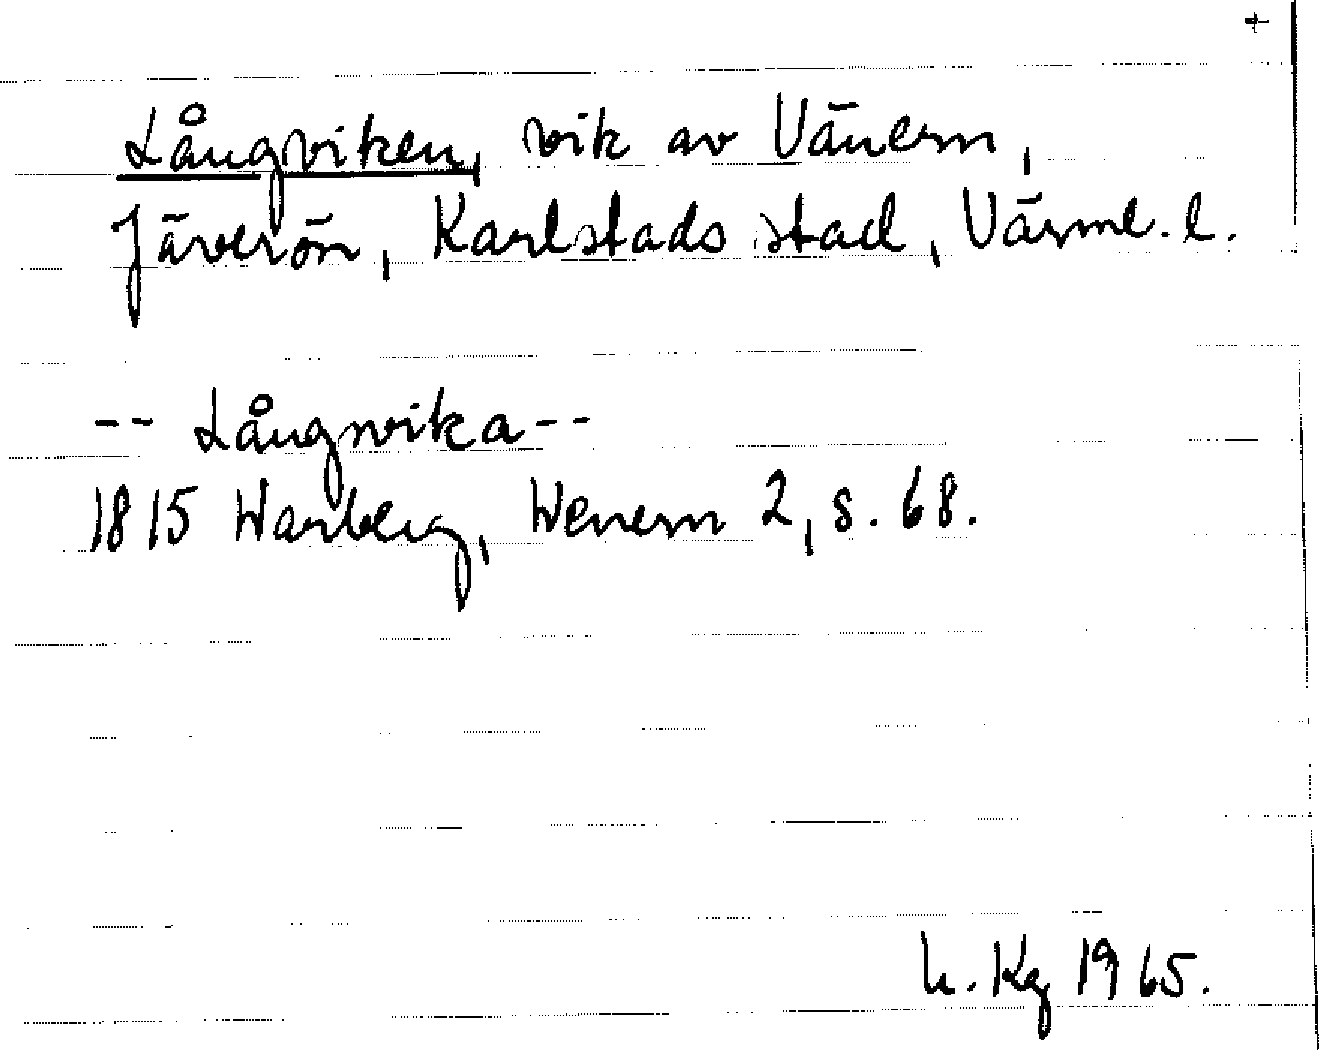 +
Långviken, vik av Vänern,
Jäverön, Karlstads stad, Värml. l.
-- Långvika --
1815 Warberg, Wenern 2, s. 68.
h. Kg 1965.